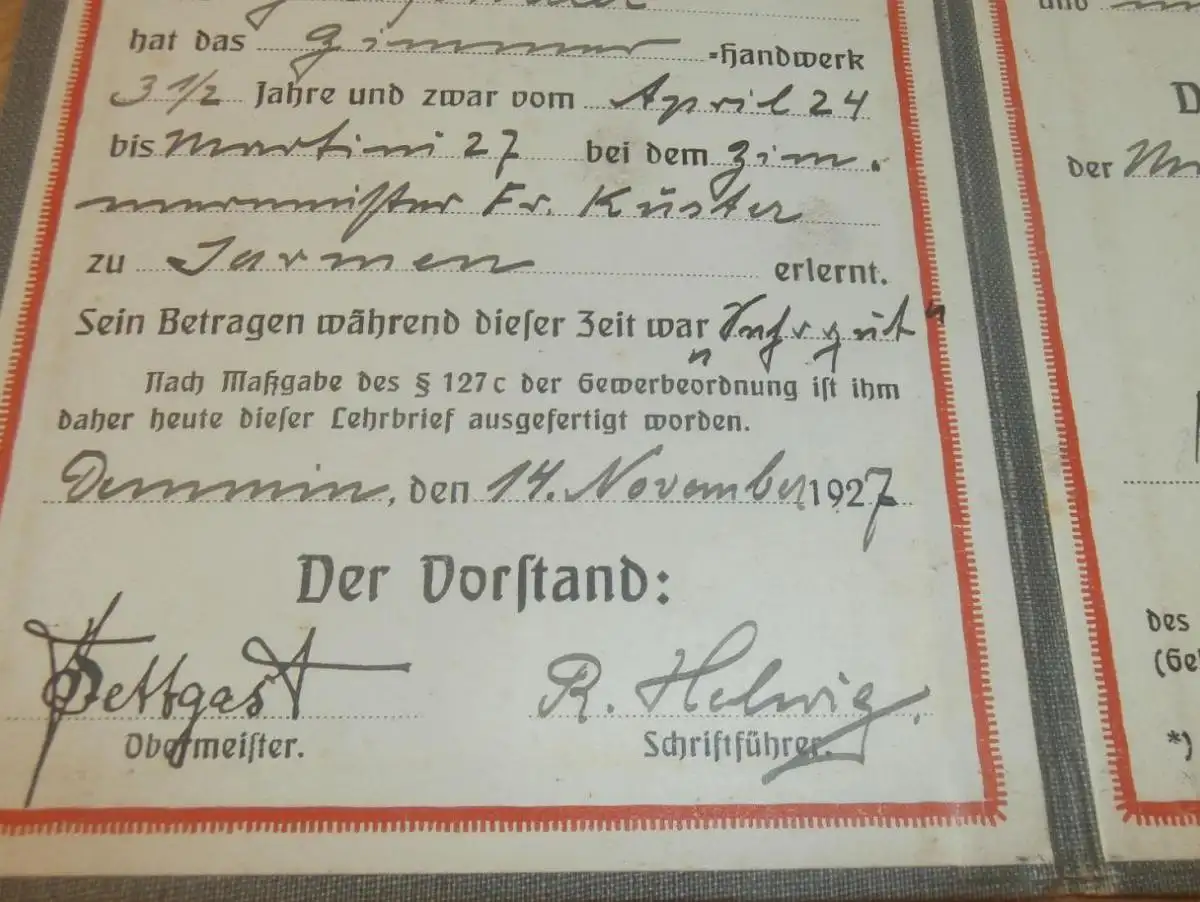 hat das Zimmer =Handwerk
3 1/2 Jahre und zwar vom April 24
bis Martini 27 bei dem Zim.
mermeister Fr. Küster
zu Jarmen erlernt.
Sein Betragen während dieser Zeit war „sehr gut"
Nach Maßgabe des § 127c der Gewerbeordnung ist ihm
daher heute dieser Lehrbrief ausgefertigt worden.
Demmin, den 14. November 1927
Der Vorstand:
Dettgast R. Helwig.
Obermeister. Schriftführer.
und
der
des
*)